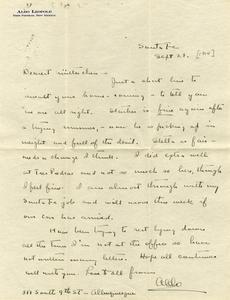 ALDO LEOPOLD
Santa Fe
Sept 23.
Dearest mütterchen -
Just a short line to
your home-coming - to tell you
we are all right. is fine again after
a trying summer, now he is picking up in
weight and full of the devil.
needs a change I think. I did extra well
at Tres Piedras and not so much so here, though
I feel fine. I am almost through with my
Santa Fe job and will move this week if
our car has arrived.
Have been trying to rest lying down
all the time I'm not at the office so have
not written many letters. Hope all continues
well with you. Love to all from
Aldo
South 9th St - Albuquerque